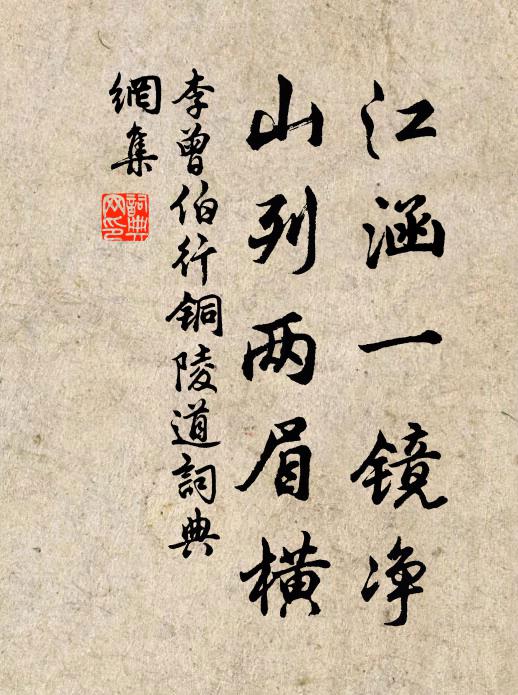 江涵一镜净
山列两眉横
李曾伯行铜陵道詞典
網集
詞典
网印